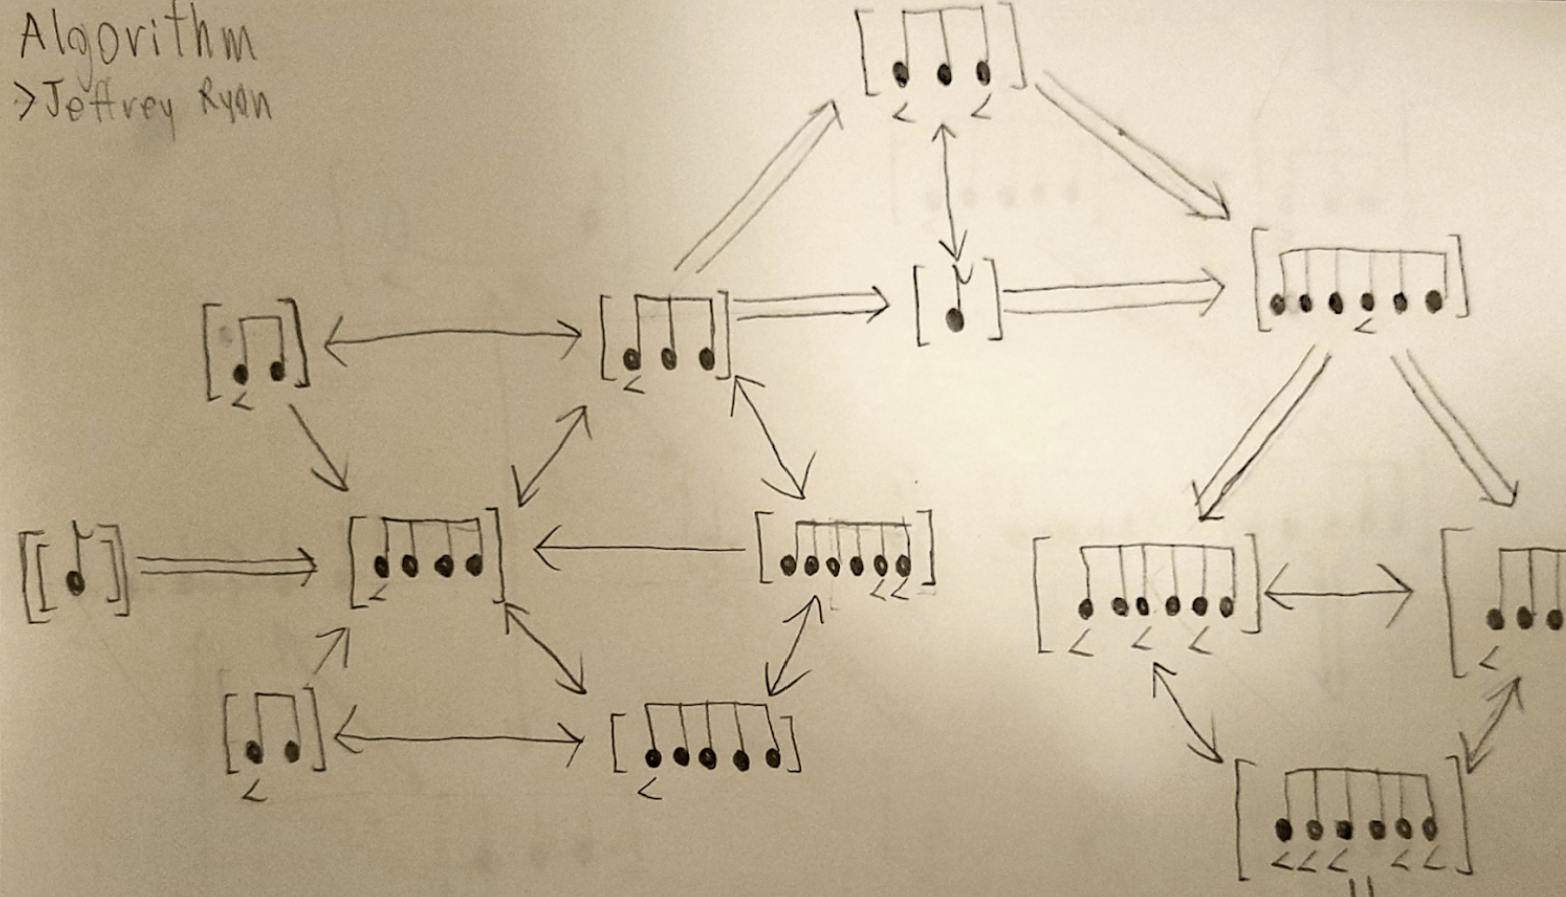 Algorithm
>Jeffrey Ryan